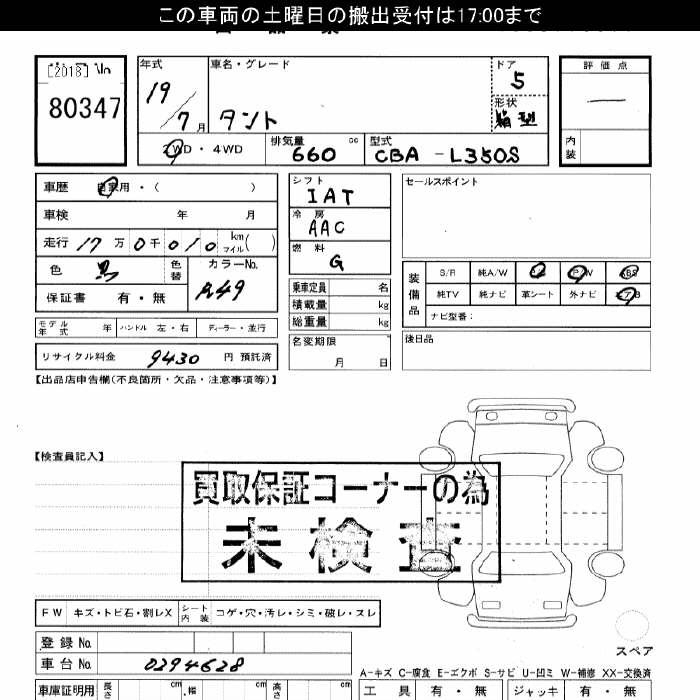 この車両の土曜日の搬出受付は17:00まで
[2018]
80347
年式
19/7月
車名・グレード
タント
ドア
5
形状
箱型
評価点
内装
2WD・4WD
排気量
660 cc
型式
CBA-L350S
車歴 自家用・( )
車検 年 月
走行 17万0千010 km マイル( )
色 黒 色替
カラーNo.
保証書 有・無
シフト
IAT
冷房
AAC
燃料
G
乗車定員 名
積載量 kg
総重量 kg
名変期限
月 日
セールスポイント
装備品
S/R 純A/W P/S P/W ABS
純TV 純ナビ 革シート 外ナビ エアB
ナビ型番:
後日品
モデル年式 年 ハンドル 左・右 ディーラー・並行
リサイクル料金 9430 円 預託済
【出品店申告欄(不良箇所・欠品・注意事項等)】
【検査員記入】
買取保証コーナーの為
未検査
FW キズ・トビ石・割レX シート内装 コゲ・穴・汚レ・シミ・破レ・スレ
登録No.
車台No. 0294628
スペア
A-キズ C-腐食 E-エクボ S-サビ U-凹ミ W-補修 XX-交換済
車庫証明用 長さ cm 幅 cm 高さ cm
工具 有・無 ジャッキ 有・無